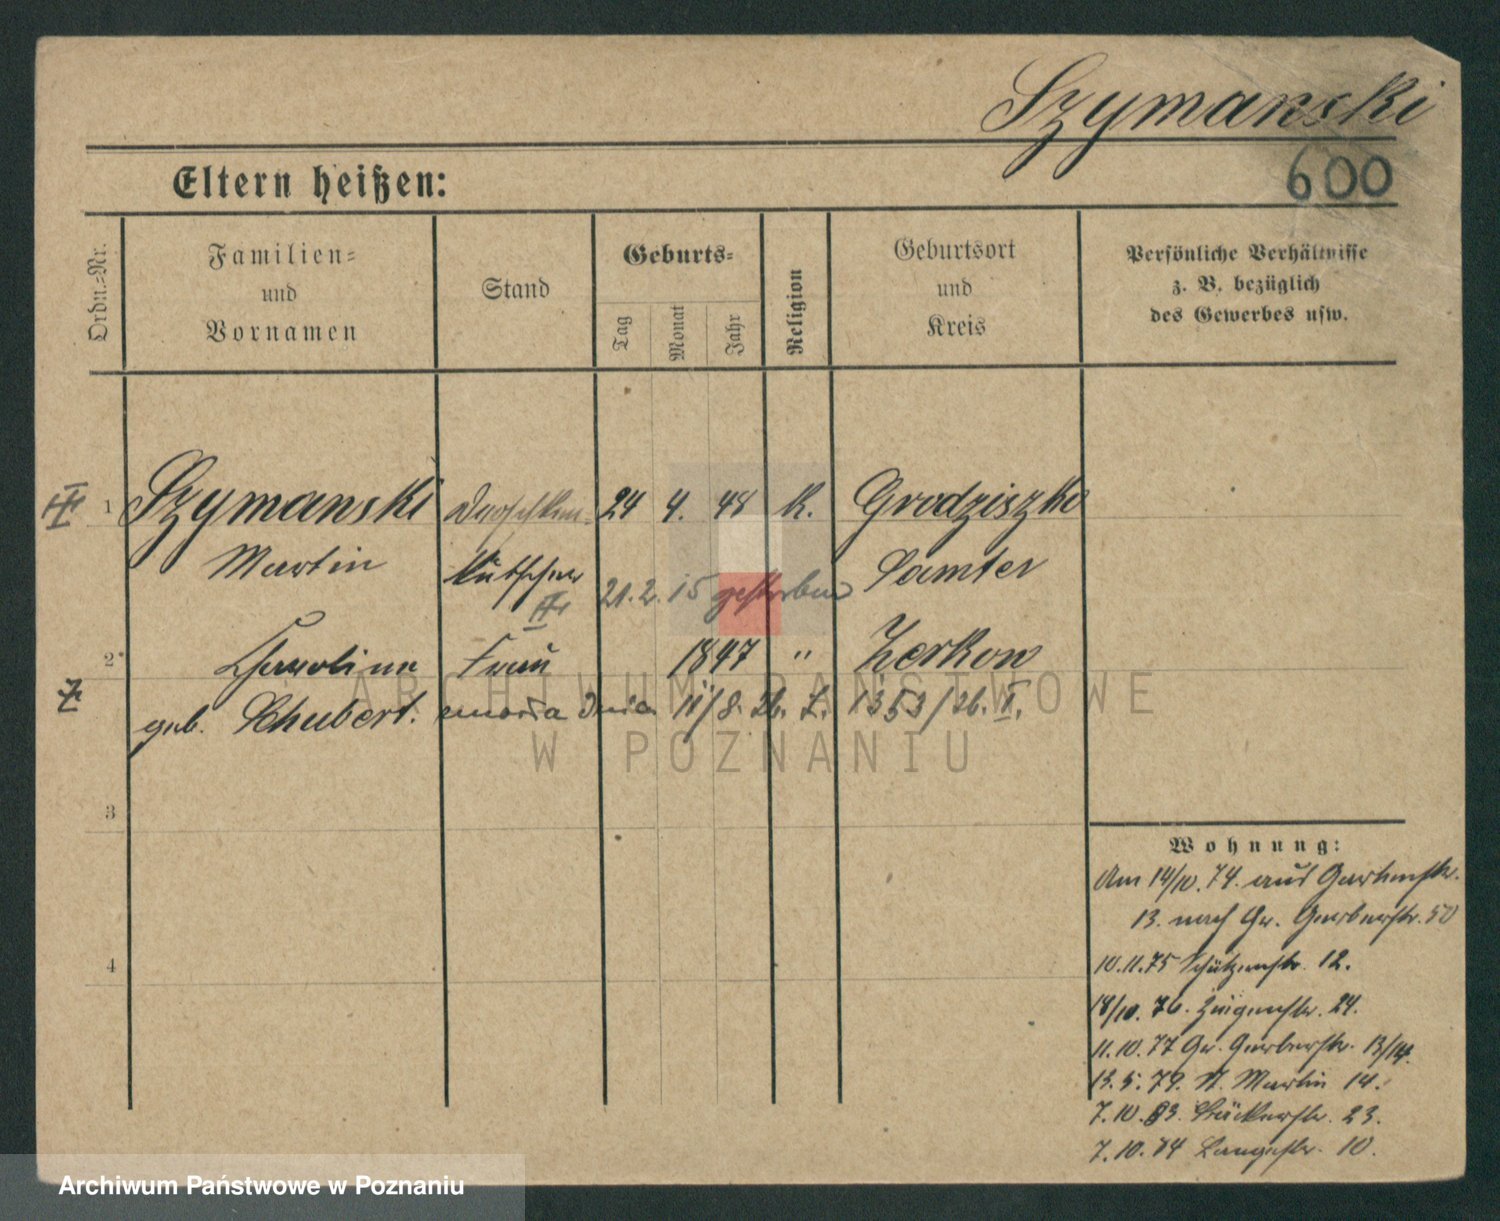 Szymanski
600
Eltern heißen:
Ordn.-Nr.
Familien-
und
Vornamen
Stand
Geburts-
Tag
Monat
Jahr
Religion
Geburtsort
und
Kreis
Persönliche Verhältnisse
z. B. bezüglich
des Gewerbes usw.
1 Szymanski Droschken- 24 4. 48 K. Grodziszko
Martin kutscher Samter
21. 2. 15 gestorben
2 Karoline Frau 1847 " Zerkow
geb. Schubert. zmarła dnia 11/8. 26. L. 1353/26. II.
3
4
Wohnung:
Am 14/10. 74. aus Gartenstr.
13. nach Gr. Gerberstr. 50
10.11.75 Schützenstr. 12.
18/10. 76. 24.
11.10.77 Gr. Gerberstr. 13/14.
13.5.79. St. Martin 14.
7.10.83. Bäckerstr. 23.
7.10.84 Langestr. 10.
ARCHIWUM PAŃSTWOWE
W POZNANIU
Archiwum Państwowe w Poznaniu